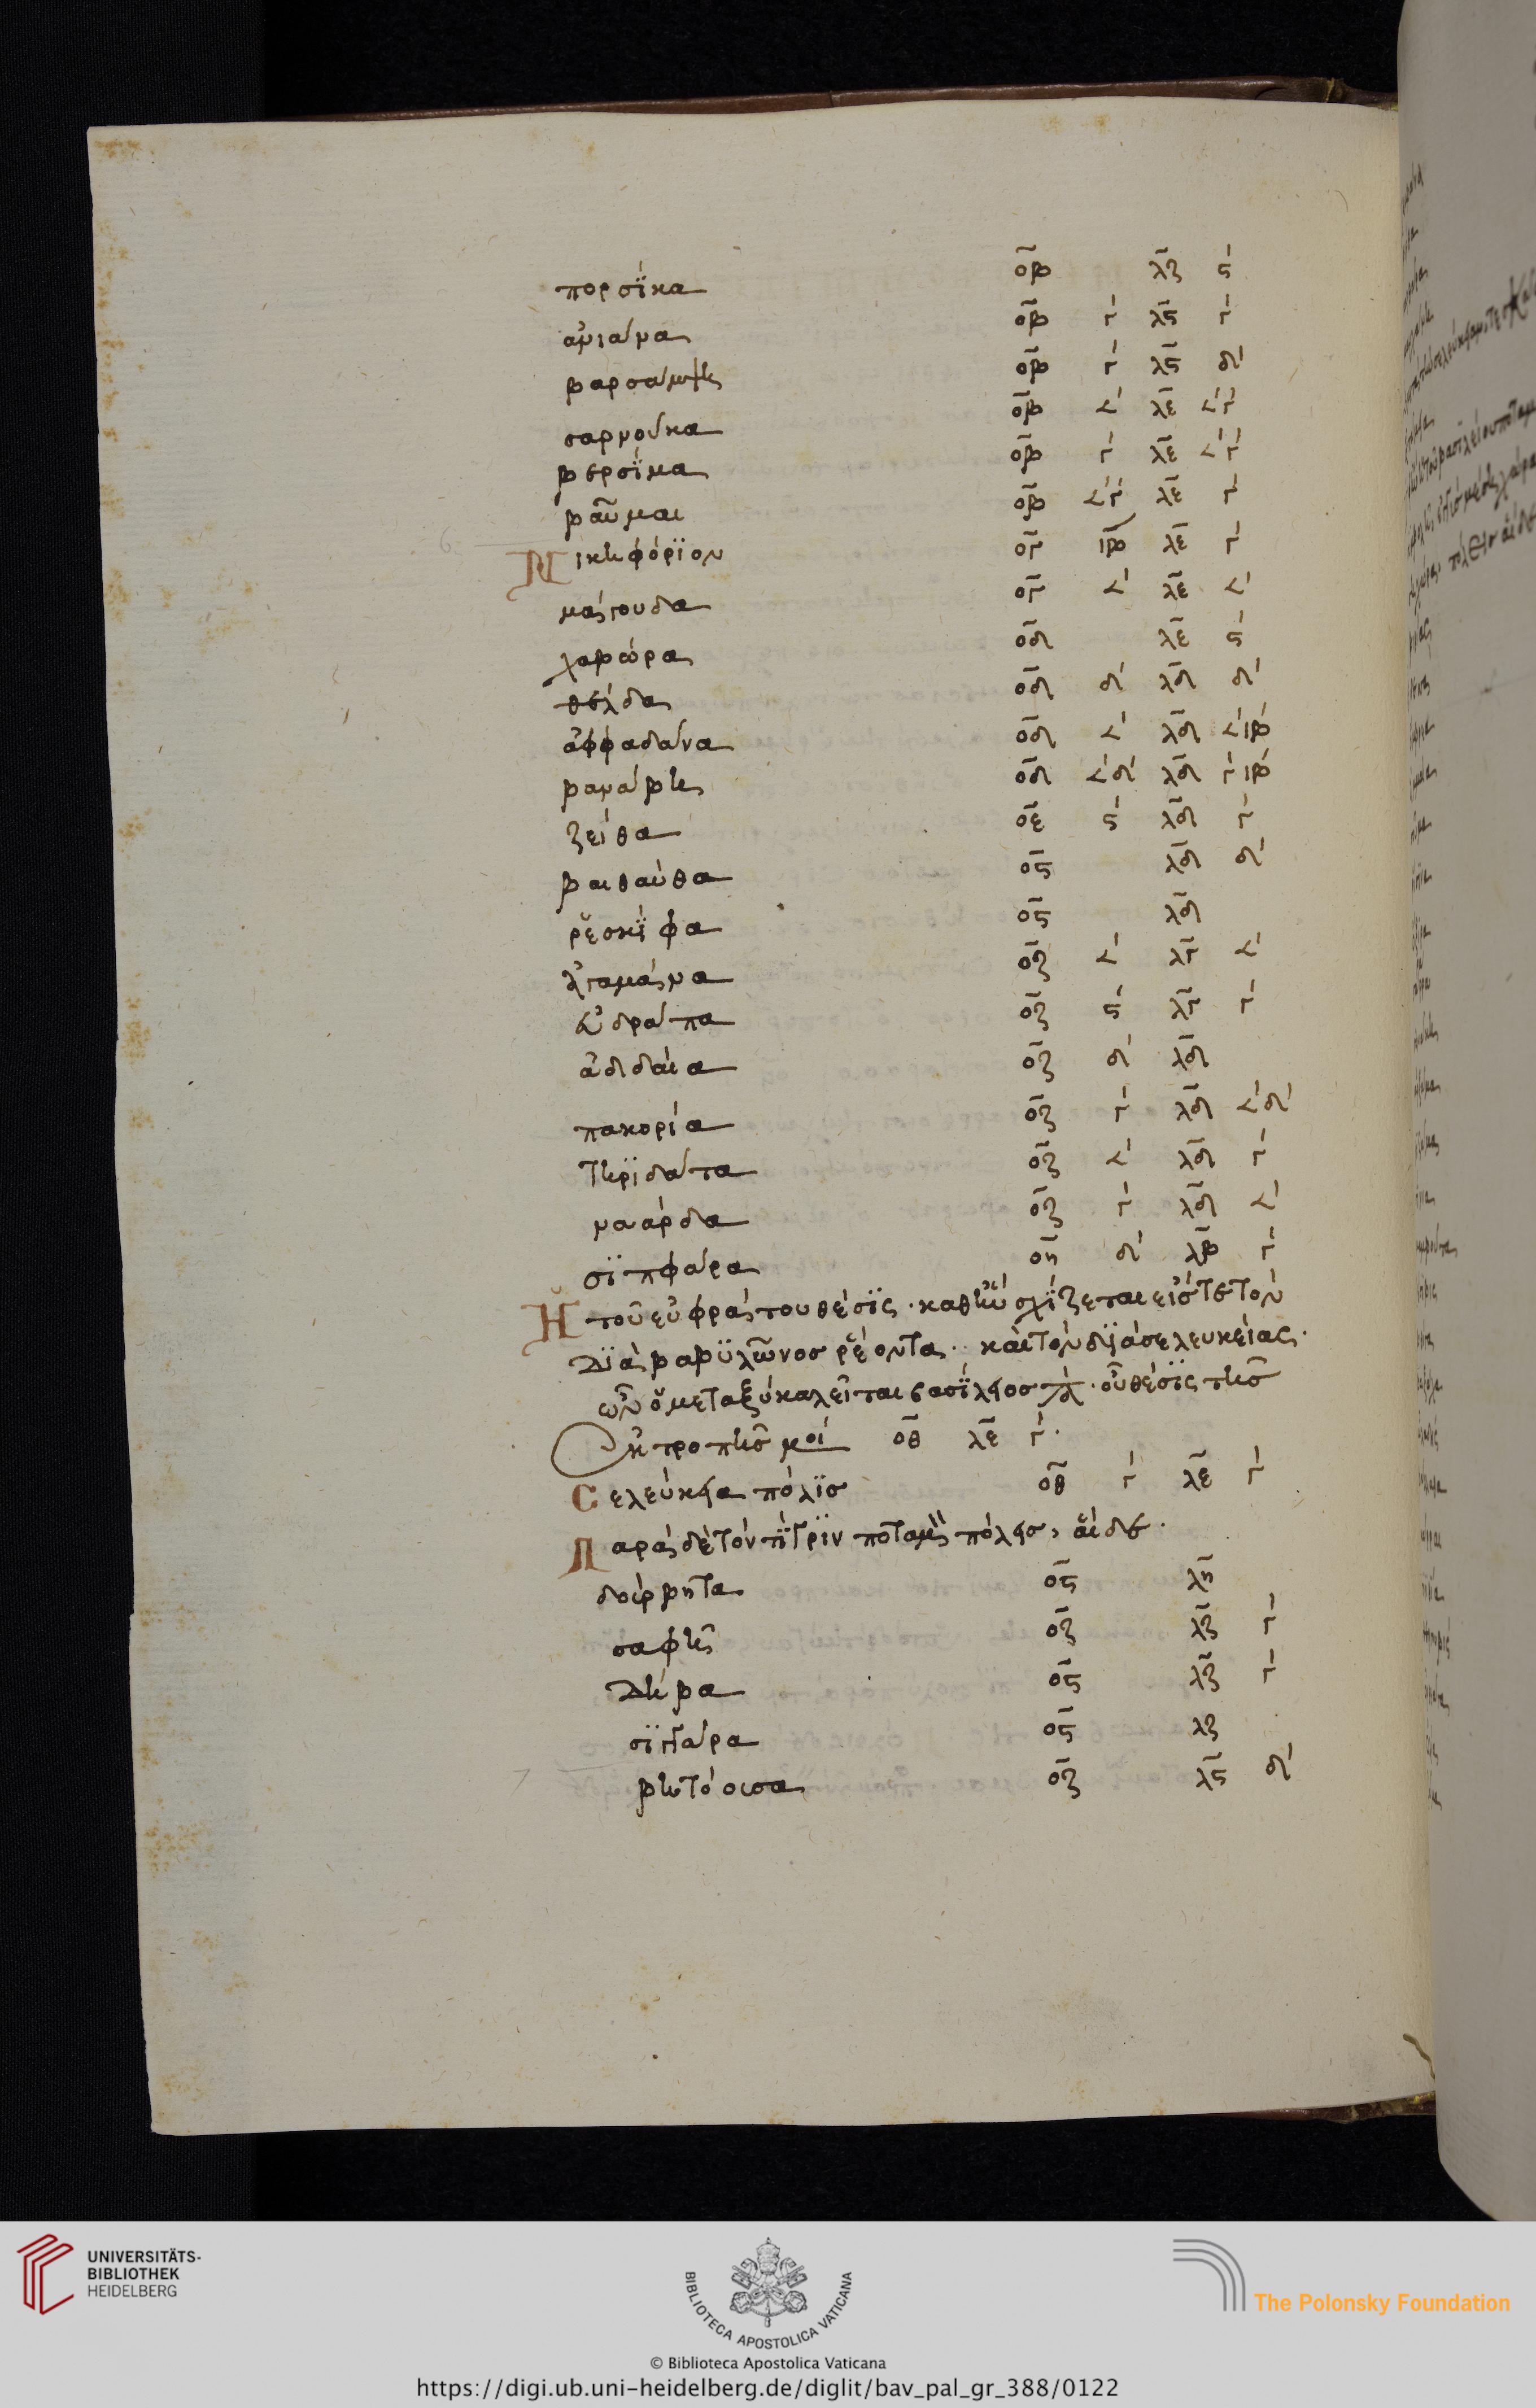 πορσΐκα οβ̅ λζ̅ ϛ́
ἀνιάνα οβ̅ γ́ λϛ̅ γ́
βαρσάμψη οβ̅ γ́ λϛ̅ δ́
σαρνούκα οβ̅ 𐅵́ λε̅ 𐅵́γ́
βερσΐμα οβ̅ γ́ λε̅ 𐅵́γ́
βαῦμαι οβ̅ 𐅵́γ́ λε̅ γ́
Νικηφόρϊον ογ̅ ιβ́ λε̅ γ́
μάγουδα ογ̅ 𐅵́ λε̅ 𐅵́
χαβώρα οδ̅ λε̅ ϛ́
θέλδα οδ̅ δ́ λδ̅ δ́
ἀφφαδάνα οδ̅ 𐅵́ λδ̅ 𐅵́ιβ́
βανάβη οδ̅ 𐅵́δ́ λδ̅ γ́ιβ́
ζείθα οε̅ ϛ́ λδ̅ γ́
βαιθαύθα οϛ̅ λδ̅ δ́
ῥεσκΐφα οϛ̅ λδ̅
ἀγαμάνα οζ̅ 𐅵́ λγ̅ 𐅵́
εὐδράπα οζ̅ ϛ́ λγ̅ γ́
ἀδδαία οζ̅ δ́ λδ̅
πακορία οζ̅ γ́ λδ̅ 𐅵́δ́
Τηρϊδάτα οζ̅ 𐅵́ λδ̅ γ́
νaάρδα οζ̅ γ́ λδ̅ 𐅵́
σϊπφάρα οη̅ δ́ λβ̅ γ́
Ἡ τοῦ εὐφράτου θέσϊς · καθ' ἣν σχΐζεται εἴς τε τὸν
Δϊὰ βαβϋλῶνοσ ῥέοντα · καὶ τὸν δϊὰ σελευκείας ·
ὧν ὁ μεταξὺ καλεῖται βασΐλειοσ · οὗ θέσϊς τῆσ
Ἐκτροπῆσ μοί οθ̅ λε̅ γ́ ·
Σελεύκεια πόλϊσ οθ̅ γ́ λε̅ γ́
Παρὰ δὲ τὸν τΐγρϊν ποταμὸν πόλεισ, αἵδε ·
δόρβητα οϛ̅ λη̅
σαφῆ οζ̅ λζ̅ γ́
Δήβα οϛ̅ λζ̅ γ́
σϊγγάρα οϛ̅ λζ
βητόουσα οζ̅ λϛ̅ δ́
UNIVERSITÄTS-
BIBLIOTHEK
HEIDELBERG
BIBLIOTECA APOSTOLICA VATICANA
The Polonsky Foundation
© Biblioteca Apostolica Vaticana
https://digi.ub.uni-heidelberg.de/diglit/bav_pal_gr_388/0122